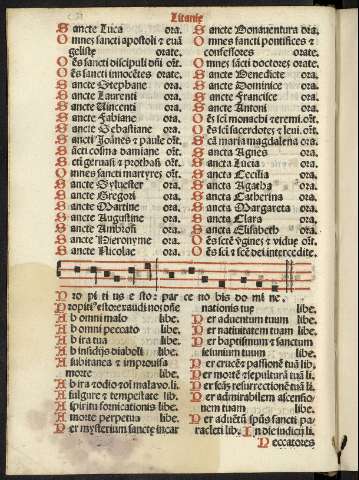 Litanie
Sancte Luca ora.
Omnes sancti apostoli & euã
geliste orate.
Oẽs sancti discipuli dñi oȓt.
Oẽs sancti innocẽtes orate.
Sancte Stephane ora.
Sancte Laurenti ora.
Sancte Vincenti ora.
Sancte Fabiane ora.
Sancte Sebastiane ora.
Sancti Joãnes & paule oȓt.
Sãcti cosma damiane oȓt.
Scti geruasi & prothasi oȓt.
Omnes sancti martyres oȓt.
Sancte Syluester ora.
Sancte Gregori ora.
Sancte Martine ora.
Sancte Augustine ora.
Sancte Ambrosi ora.
Sancte Hieronyme ora.
Sancte Nicolae ora.
Sancte Bonauentura ora.
Omnes sancti pontifices &
confessores orate.
Omnes sãcti doctores orate.
Sancte Benedicte ora.
Sancte Dominice ora.
Sancte Francisce ora.
Sancte Antoni ora.
Oẽs sci monachi & eremi. oȓt
Oẽs sci sacerdotes & leui. oȓt.
Scã maria magdalena ora.
Sancta Agnes ora.
Sancta Lucia ora.
Sancta Cecilia ora.
Sancta Agatha ora.
Sancta Catherina ora.
Sancta Margareta ora.
Sancta Clara ora.
Sancta Elisabeth ora.
Oẽs sctẽ vgines & vidue oȓt.
Oẽs sci & scẽ dei intercedite.
Pro pi ti us e sto: par ce no bis do mi ne.
Propiti⁹ esto: exaudi nos dñe
Ab omni malo libe.
Ab omni peccato libe.
Ab ira tua libe.
Ab insidijs diaboli libe.
A subitanea & improuisa
morte libe.
Ab ira & odio & oi mala vo. li.
A fulgure & tempestate lib.
A spiritu fornicationis libe.
A morte perpetua libe.
Per mysterium sanctę incar
nationis tuę libe.
Per aduentum tuum libe.
Per natiuitatem tuam libe.
Per baptismum & sanctum
ieiunium tuum libe.
Per crucẽ & passionẽ tuã lib.
Per mortẽ & sepulturã tuã li.
Per scãm resurrectionẽ tuã li.
Per admirabilem ascensio
nem tuam libe.
Per aduentũ spũs sancti pa
racleti lib. In die iudicij li.
Peccatores